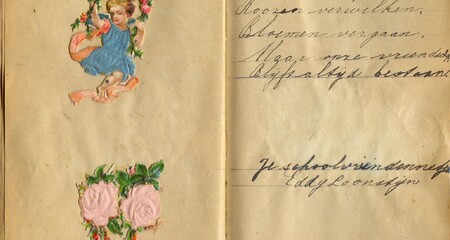 Roozen verwelken,
Bloemen vergaan,
Maar onze vriendsch
Blyft altyd bestaan.
Je schoolvriendinnetje
Eddy Loonstijn